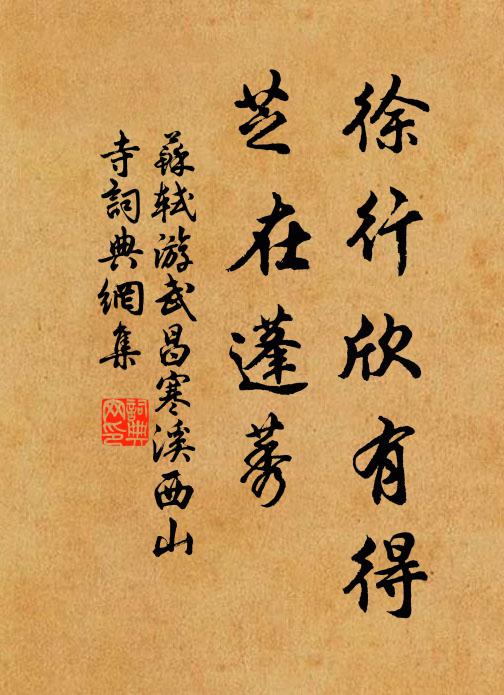 徐行欣有得
芝在蓬莠
蘇軾游武昌寒溪西山
寺詞典網集
詞典
网印